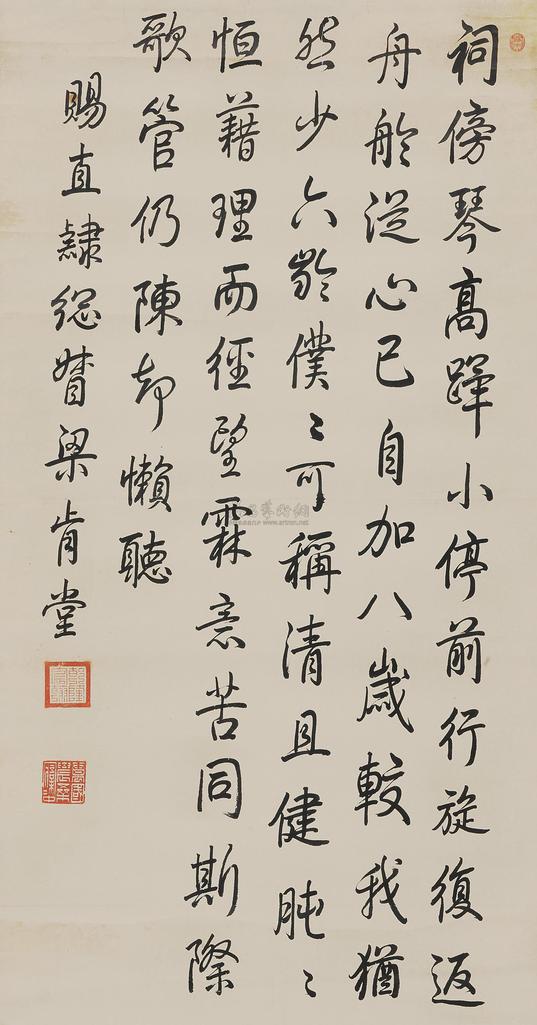 祠傍琴高蹕小停前行旋復返
舟舲從心已自加八歲較我猶
然少六齡僕〻可稱清且健肫〻
恒藉理而經望霖意苦同斯際
歌管仍陳却懶聽
賜直隸總督梁肯堂
www.artron.net